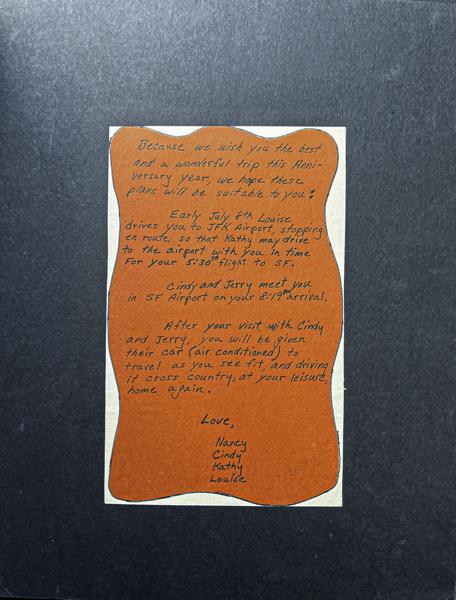 Because we wish you the best
and a wonderful trip this Anni-
versary year, we hope these
plans will be suitable to you:
Early July 8th Louise
drives you to JFK Airport, stopping
en route so that Kathy may drive
to the airport with you in time
For your 5:30 pm flight to SF.
Cindy and Jerry meet you
in SF Airport on your 8:19 pm arrival.
After your visit with Cindy
and Jerry, you will be given
their car (air conditioned) to
travel as you see fit, and driving
it cross country, at your leisure,
home again.
Love,
Nancy
Cindy
Kathy
Louise